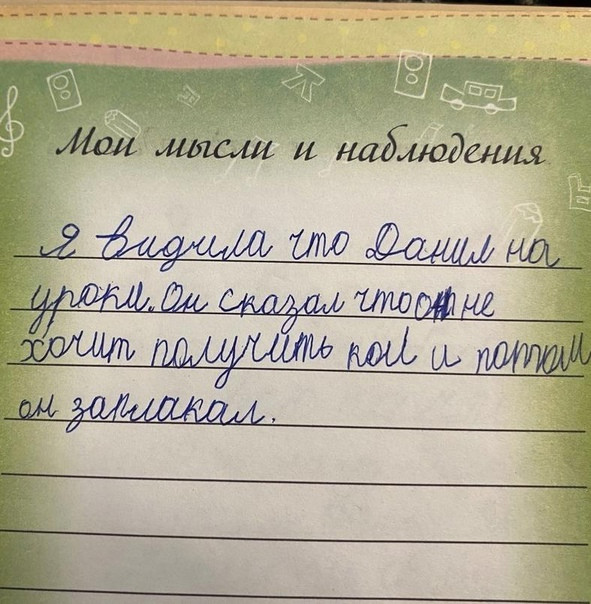 Мои мысли и наблюдения
Я видила что Данил на
уроки. Он сказал что он не
хочит получить кол и потом
он заплакал.